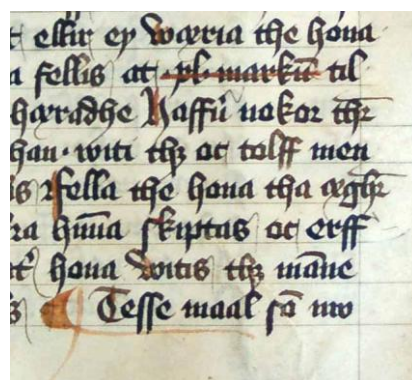 ellir ey wæria the hona
a fellis at pl markũ til
hæradhe Haffũ nokor thr̄
han· witi thꝫ oc tolff men
is ffella the hona tha æghr̄
ra hũna skiptas oc erff
hona witis thꝫ mãne
Tesse maal sã nw